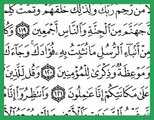 مَن رَّحِمَ رَبُّكَ وَلِذَٰلِكَ خَلَقَهُمْ وَتَمَّتْ كَلِمَ
جَهَنَّمَ مِنَ ٱلْجِنَّةِ وَٱلنَّاسِ أَجْمَعِينَ ١١٩
مِنْ أَنۢبَآءِ ٱلرُّسُلِ مَا نُثَبِّتُ بِهِۦ فُؤَادَكَ وَجَآءَ
وَمَوْعِظَةٌ وَذِكْرَىٰ لِلْمُؤْمِنِينَ ١٢٠ وَقُل لِّلَّذِينَ
عَلَىٰ مَكَانَتِكُمْ إِنَّا عَٰمِلُونَ ١٢١ وَٱنتَظِرُوٓا۟ إِنَّا